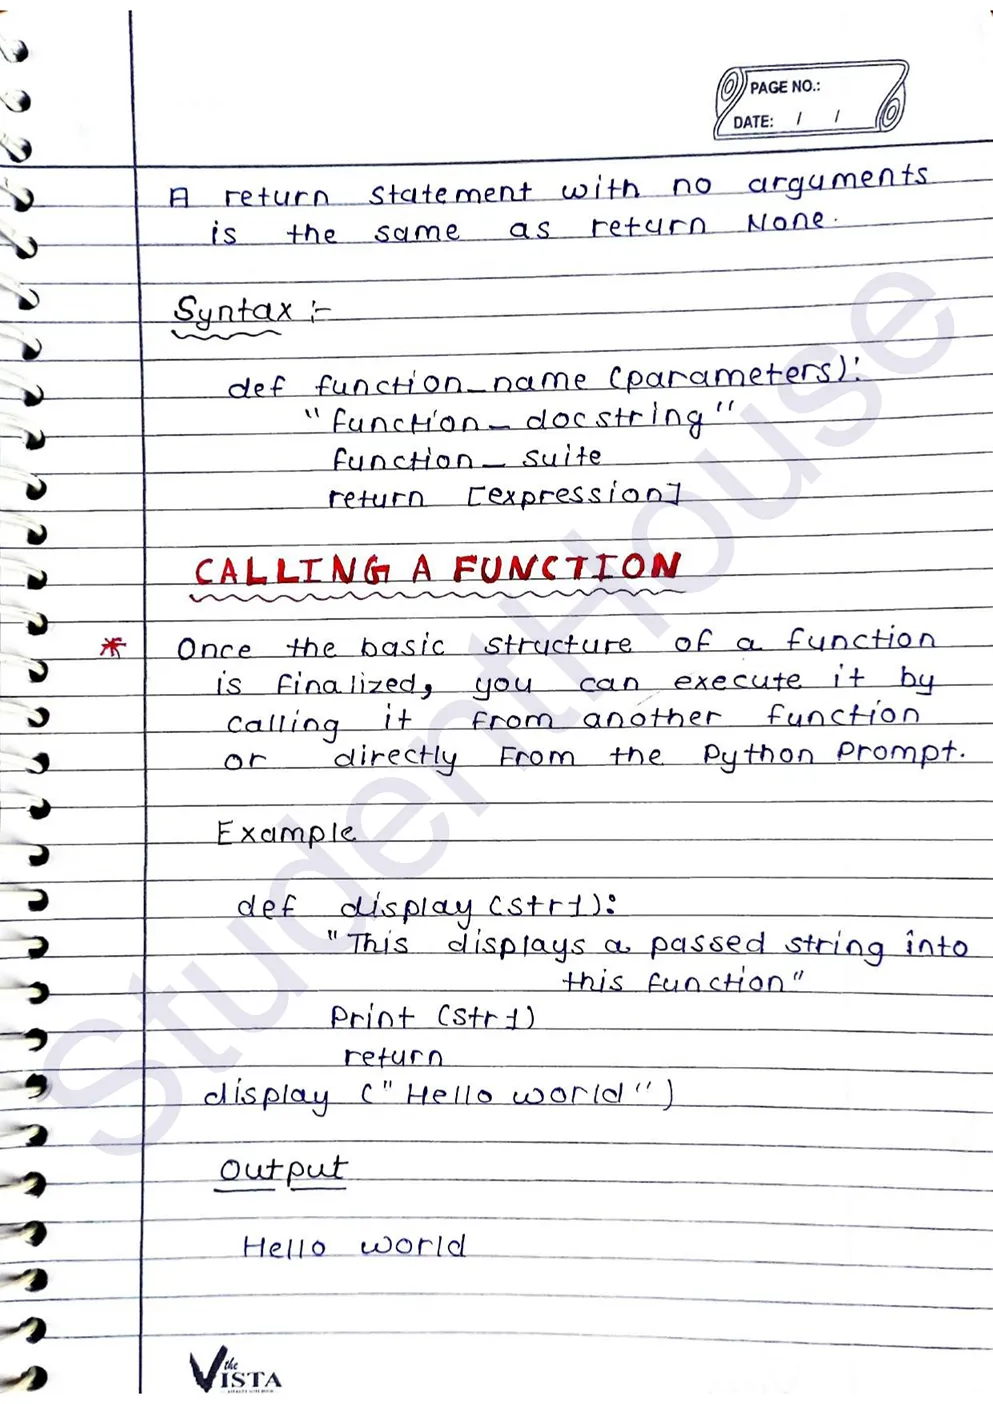 PAGE NO.:
DATE: / /
A return statement with no arguments
is the same as return None.
Syntax :-
def function_name (parameters):
"function_docstring"
function_suite
return [expression]
CALLING A FUNCTION
* Once the basic structure of a function
is finalized, you can execute it by
calling it from another function
or directly from the Python Prompt.
Example
def display (str1):
"This displays a passed string into
this function"
Print (str1)
return
display ("Hello world")
Output
Hello world
the VISTA
StudentHouse